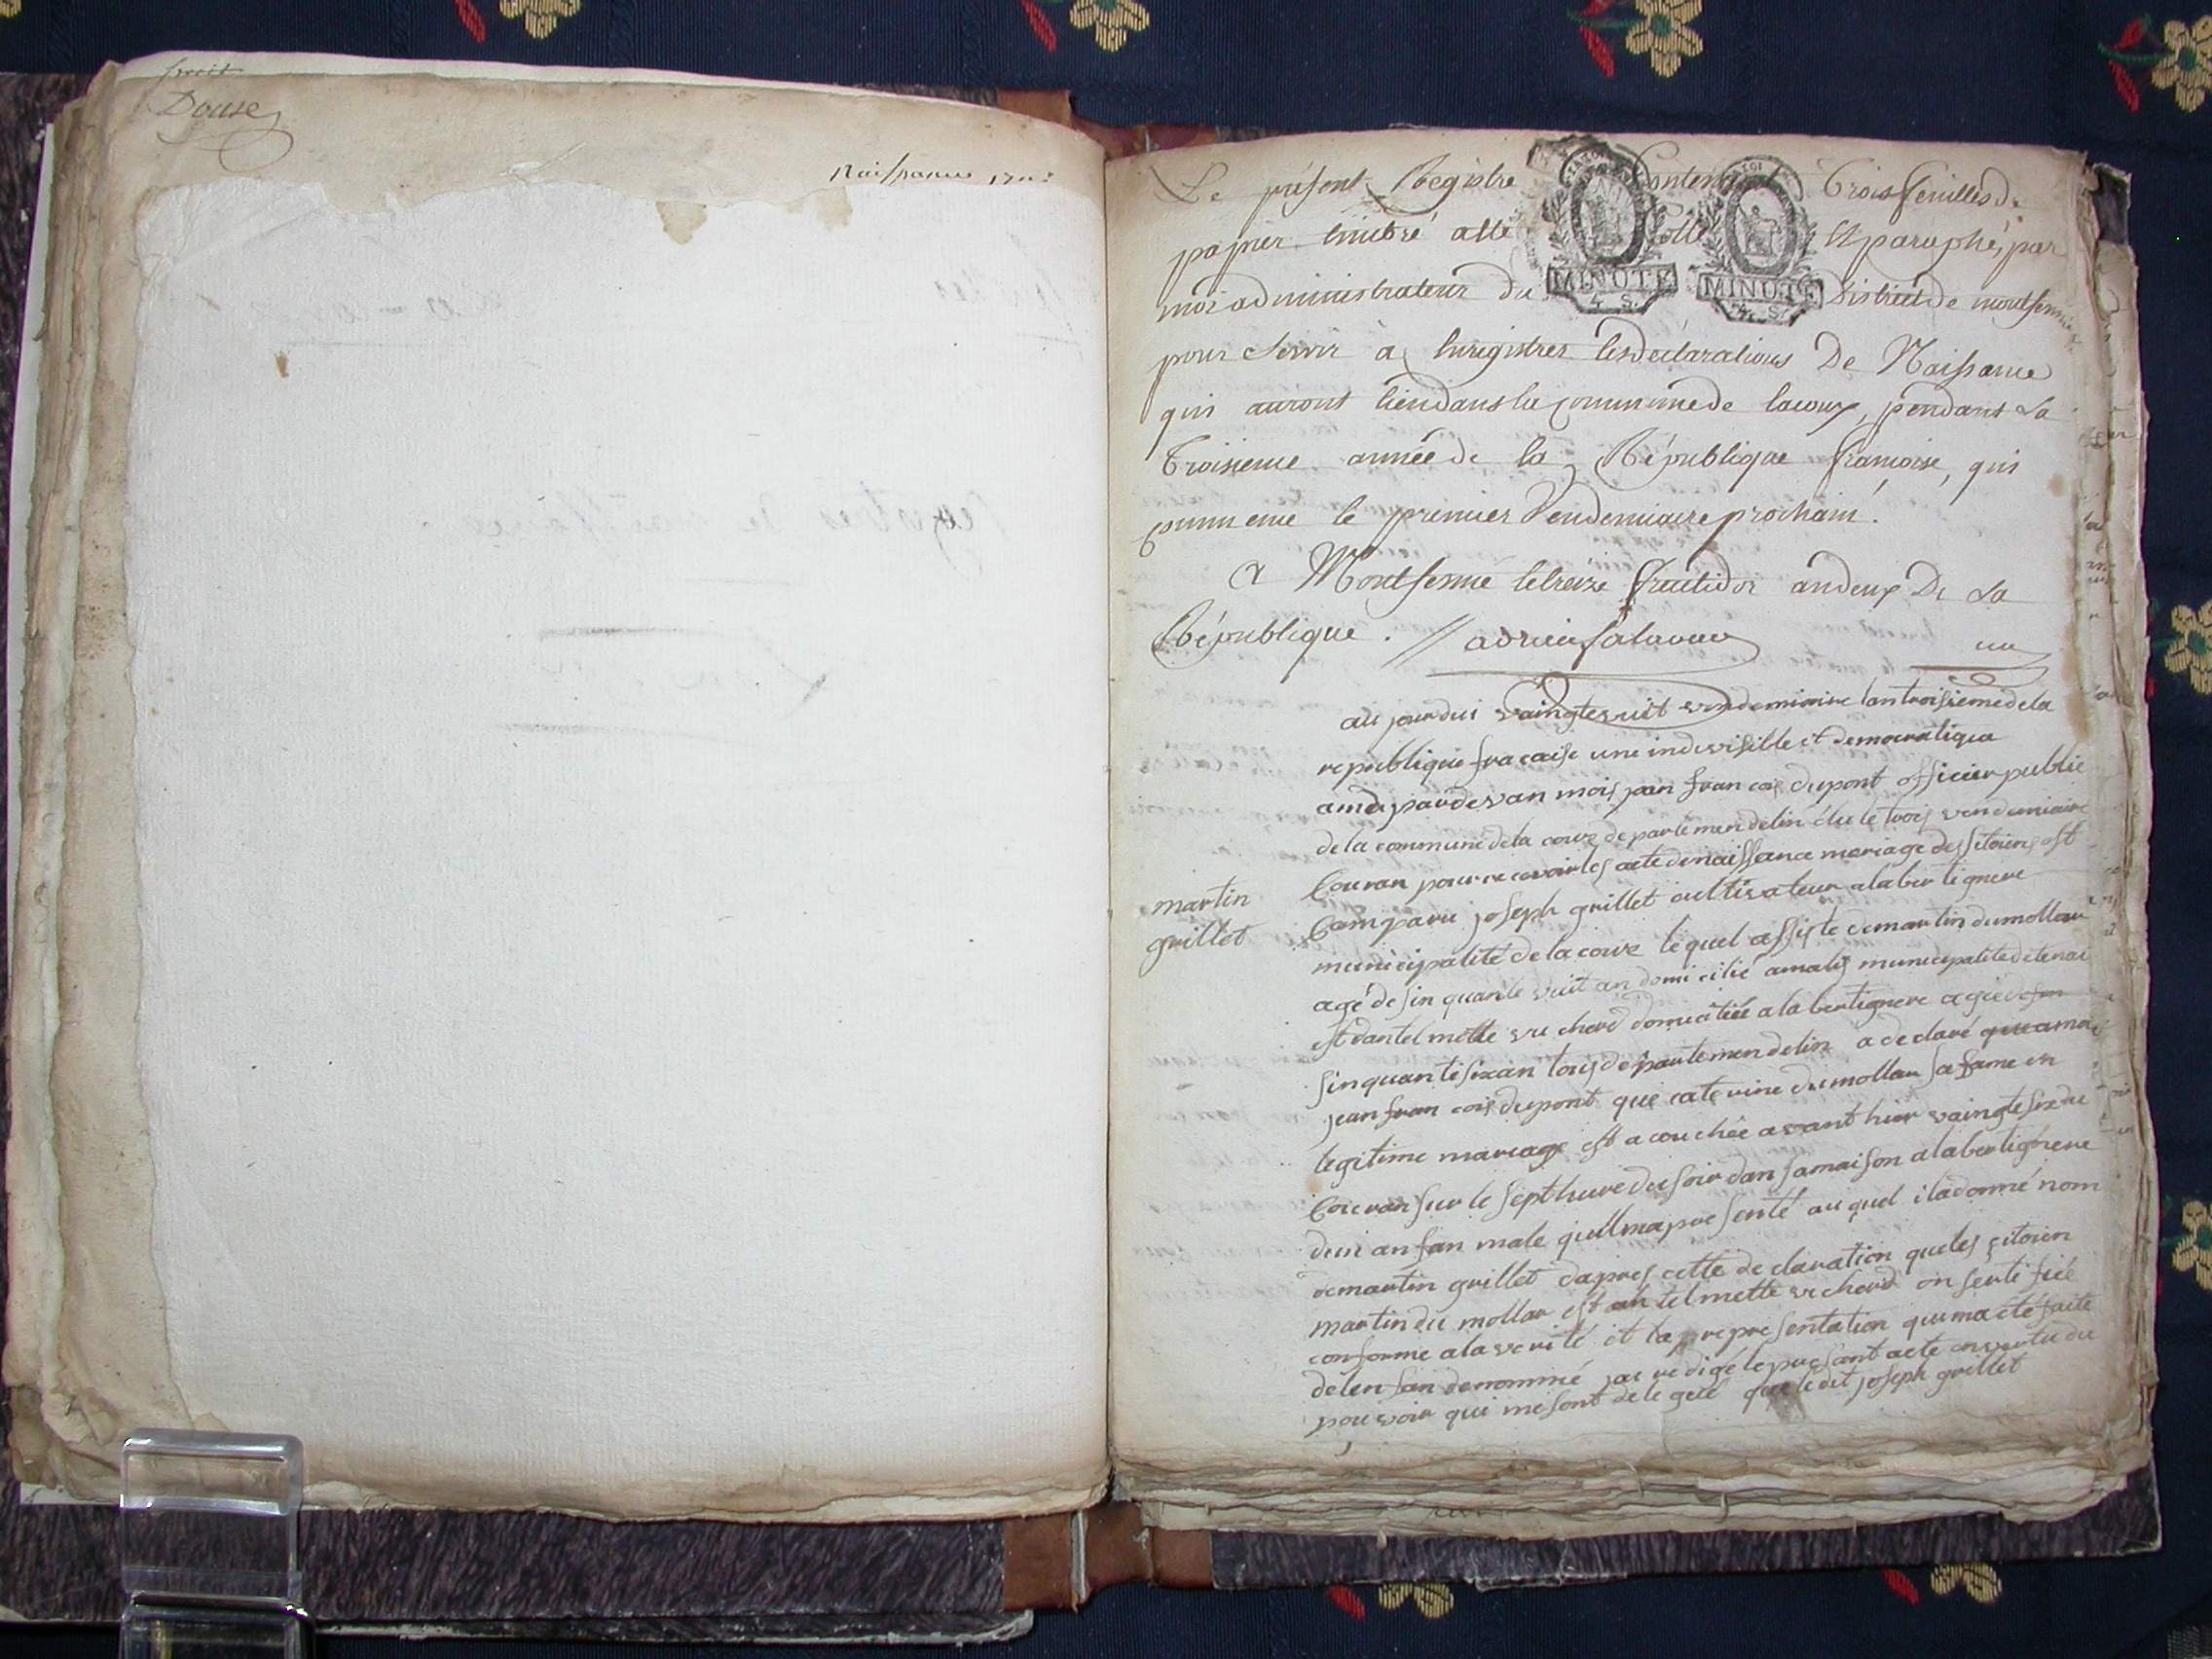 Douse
Naissance
Le présent Registre Contenant trois feuilles de
papier timbré a été Cotté Et paraphé, par
moi administrateur du District de montferme
MINUTE
4 S.
MINUTE
4 S.
pour servir à Enregistrer les déclarations De Naissance
qui auront lieu dans la Commune de lacoux, pendant La
troisieme année de la République françoise, qui
Commence le premier Vendemiaire prochain.
A Montfermé le treize fructidor an deux De La
République. //
un
au jourdui vaingtevuit vendemiaire lan troisieme de la
republique fracaise une indivisille et democratique
amoi pardevan mois jean francois dupont officier public
de la commune de la couz departemen delin élu le trois vendemiaire
Couran pour recevoir les acte de naissance mariage des sitoiens est
martin
grillet
Comparu joseph grillet cultivateur a laber tignere
municipalité de la couz le quel assiste de martin dumollar
agé de sin quante vuit an domi cilié a municipalité de
est dantel mette vu chard domicilié a la bertignere agie
sinquante sixan tous departemen delin a declaré que a moi
jean fran cois dupont que caterine du mollar sa fame en
legitime mariage est a couchée avant hier vaingte six du
Couran sur le sept hure du soir dan samaison a la bertignere
dun anfan male quil ma pre senté au quel il a donné nom
de martin grillet dapres cette de claration que les citoien
martin du mollar est an tel mette vu chard on serti fiée
conforme a la verité et la representation qui ma été faite
de len fan denommé jai redigé le presant acte en vertu du
pouvoir qui me sont de le gué que le dit joseph grillet